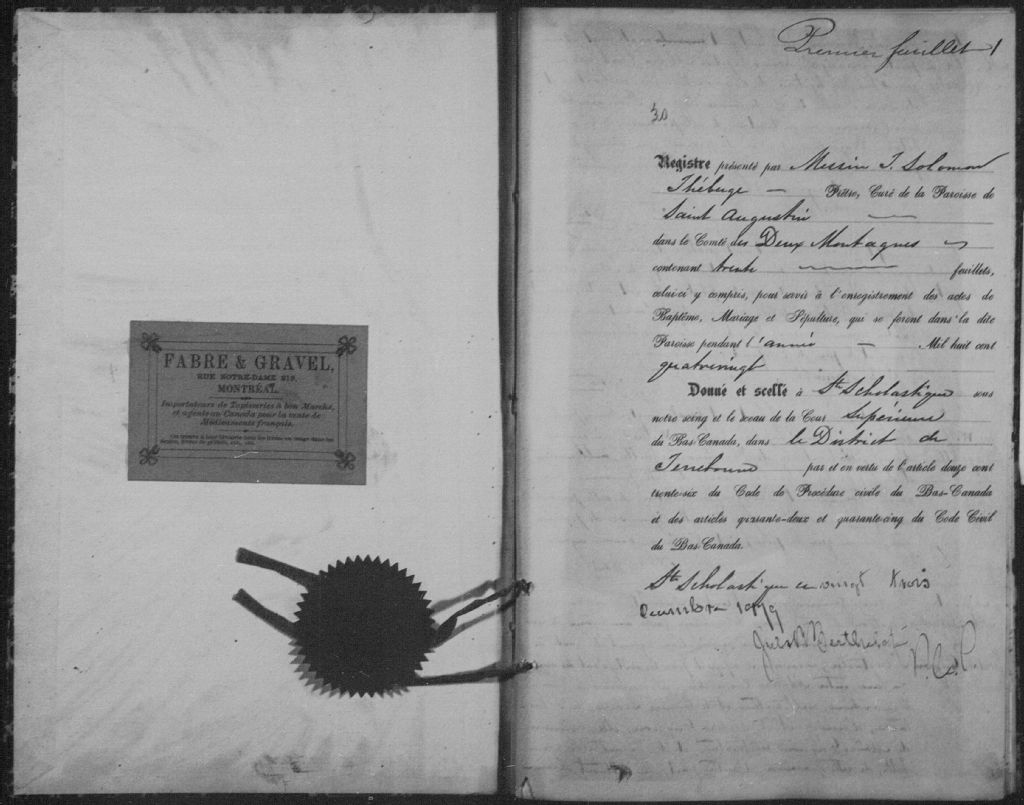 FABRE & GRAVEL,
RUE NOTRE-DAME 219,
MONTRÉAL.
Importateurs de Tapisseries à bon Marché,
et agents au Canada pour la vente de
Médicaments français.
Premier feuillet 1
30
Registre présenté par Messire T. Solomon
Thébuge — Prêtre, Curé de la Paroisse de
Saint Augustin —
dans le Comté des Deux Montagnes
contenant trente — feuillets,
celui-ci y compris, pour servir à l'enregistrement des actes de
Baptême, Mariage et Sépulture, qui se feront dans la dite
Paroisse pendant l'année — Mil huit cent
quatrevingt
Donné et scellé à Ste Scholastique sous
notre seing et le sceau de la Cour Supérieure
du Bas-Canada, dans le District de
Terrebonne par et en vertu de l'article douze cent
trente-six du Code de Procédure civile du Bas-Canada
et des articles quarante-deux et quarante-cinq du Code Civil
du Bas-Canada.
Ste Scholastique ce vingt trois
Décembre 1879
Berthelot
P.C.S.